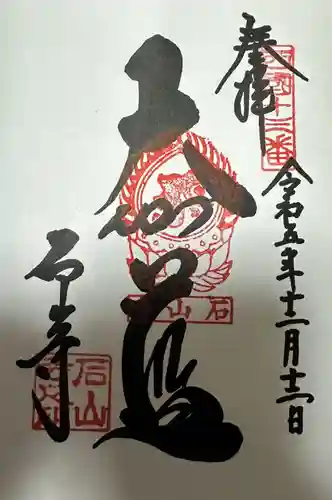 奉拝
西国十三番
令和五年十二月十二日
大伽藍
石山
石山寺
石山